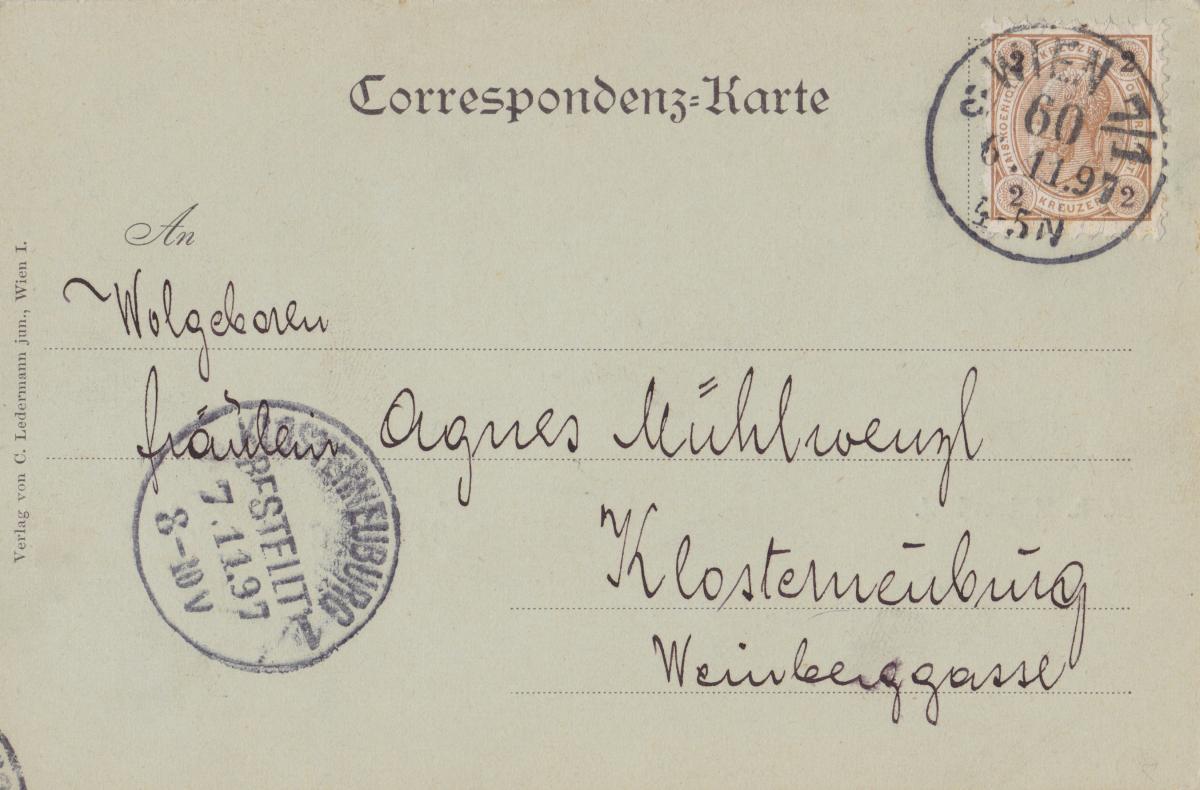 Correspondenz-Karte
WIEN 1/1
60
6.11.97
4-5N
2 KREUZER 2
2 KREUZER 2
An
Wolgeboren
Fräulein Agnes Mühlwenzl
Klosterneuburg
Weinberggasse
KLOSTERNEUBURG 1
BESTELLT
7.11.97
8-10V
Verlag von C. Ledermann jun., Wien I.